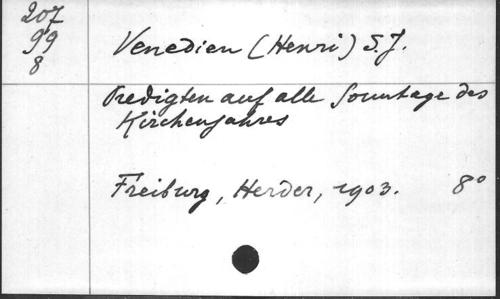 207
99
8
Venedien (Henri) S.J.
Predigten auf alle Sonntage des
Kirchenjahres
Freiburg, Herder, 1903. 8°